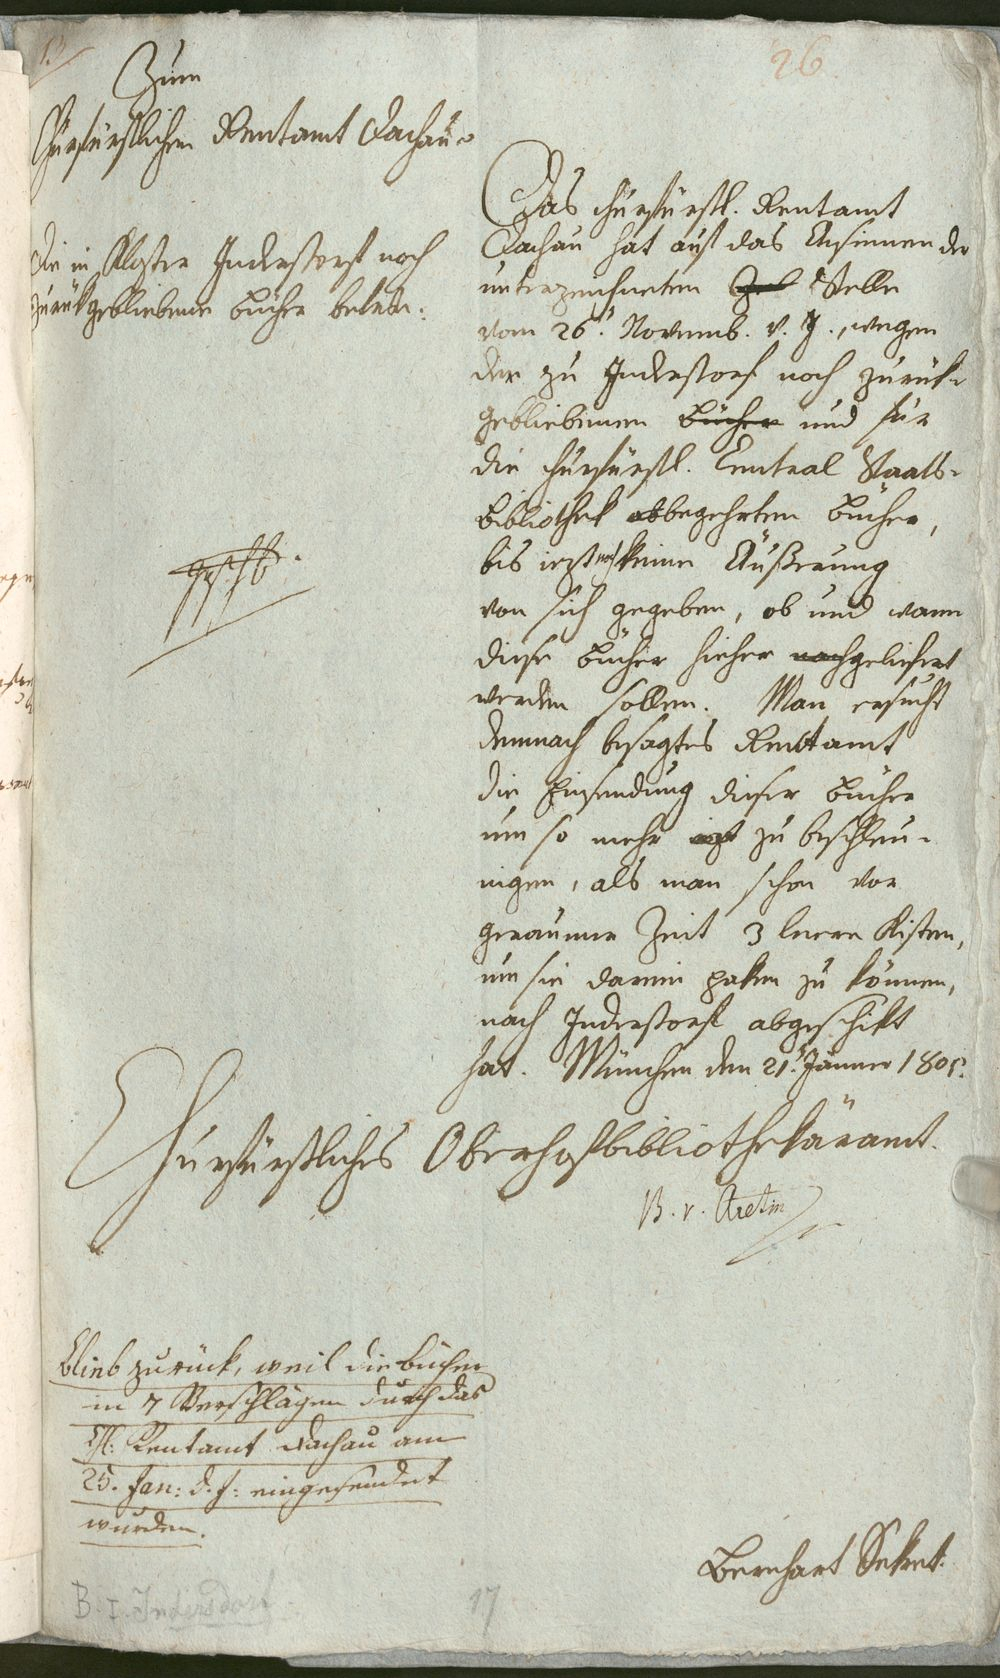 13
26
Zum
Churfürstlichen Rentamt Dachau.
Die in Kloster Inderstorf noch
zurükgebliebene Bücher betrln:
Das churfürstl. Rentamt
Dachau hat auf das Ansinnen der
unterzeichneten Stelle
vom 26t. Novemb. v. J., wegen
der zu Inderstorf noch zurük-
gebliebenen Bücher und für
die churfürstl. Central Staats-
Bibliothek abbegehrten Bücher,
bis iezt noch keine Äußerung
von sich gegeben, ob und wann
diese Bücher hieher nachgeliefert
werden sollen. Man ersucht
demnach besagtes Rentamt
die Einsendung dieser Bücher
um so mehr izt zu beschleu-
nigen, als man schon vor
geraumer Zeit 3 leere Kisten,
um sie darein paken zu können,
nach Inderstorf abgeschikt
hat. München den 21t. Jänner 1805.
Churfürstliches Oberhofbibliothekäramt.
B. v. Aretin
Blieb zurück, weil die Bücher
in 7 Verschlägen durch das
Chf: Rentamt Dachau am
25. Jan: d. J: eingesendet
wurden.
Bernhart Sekret.
B. I. Indersdorf
17